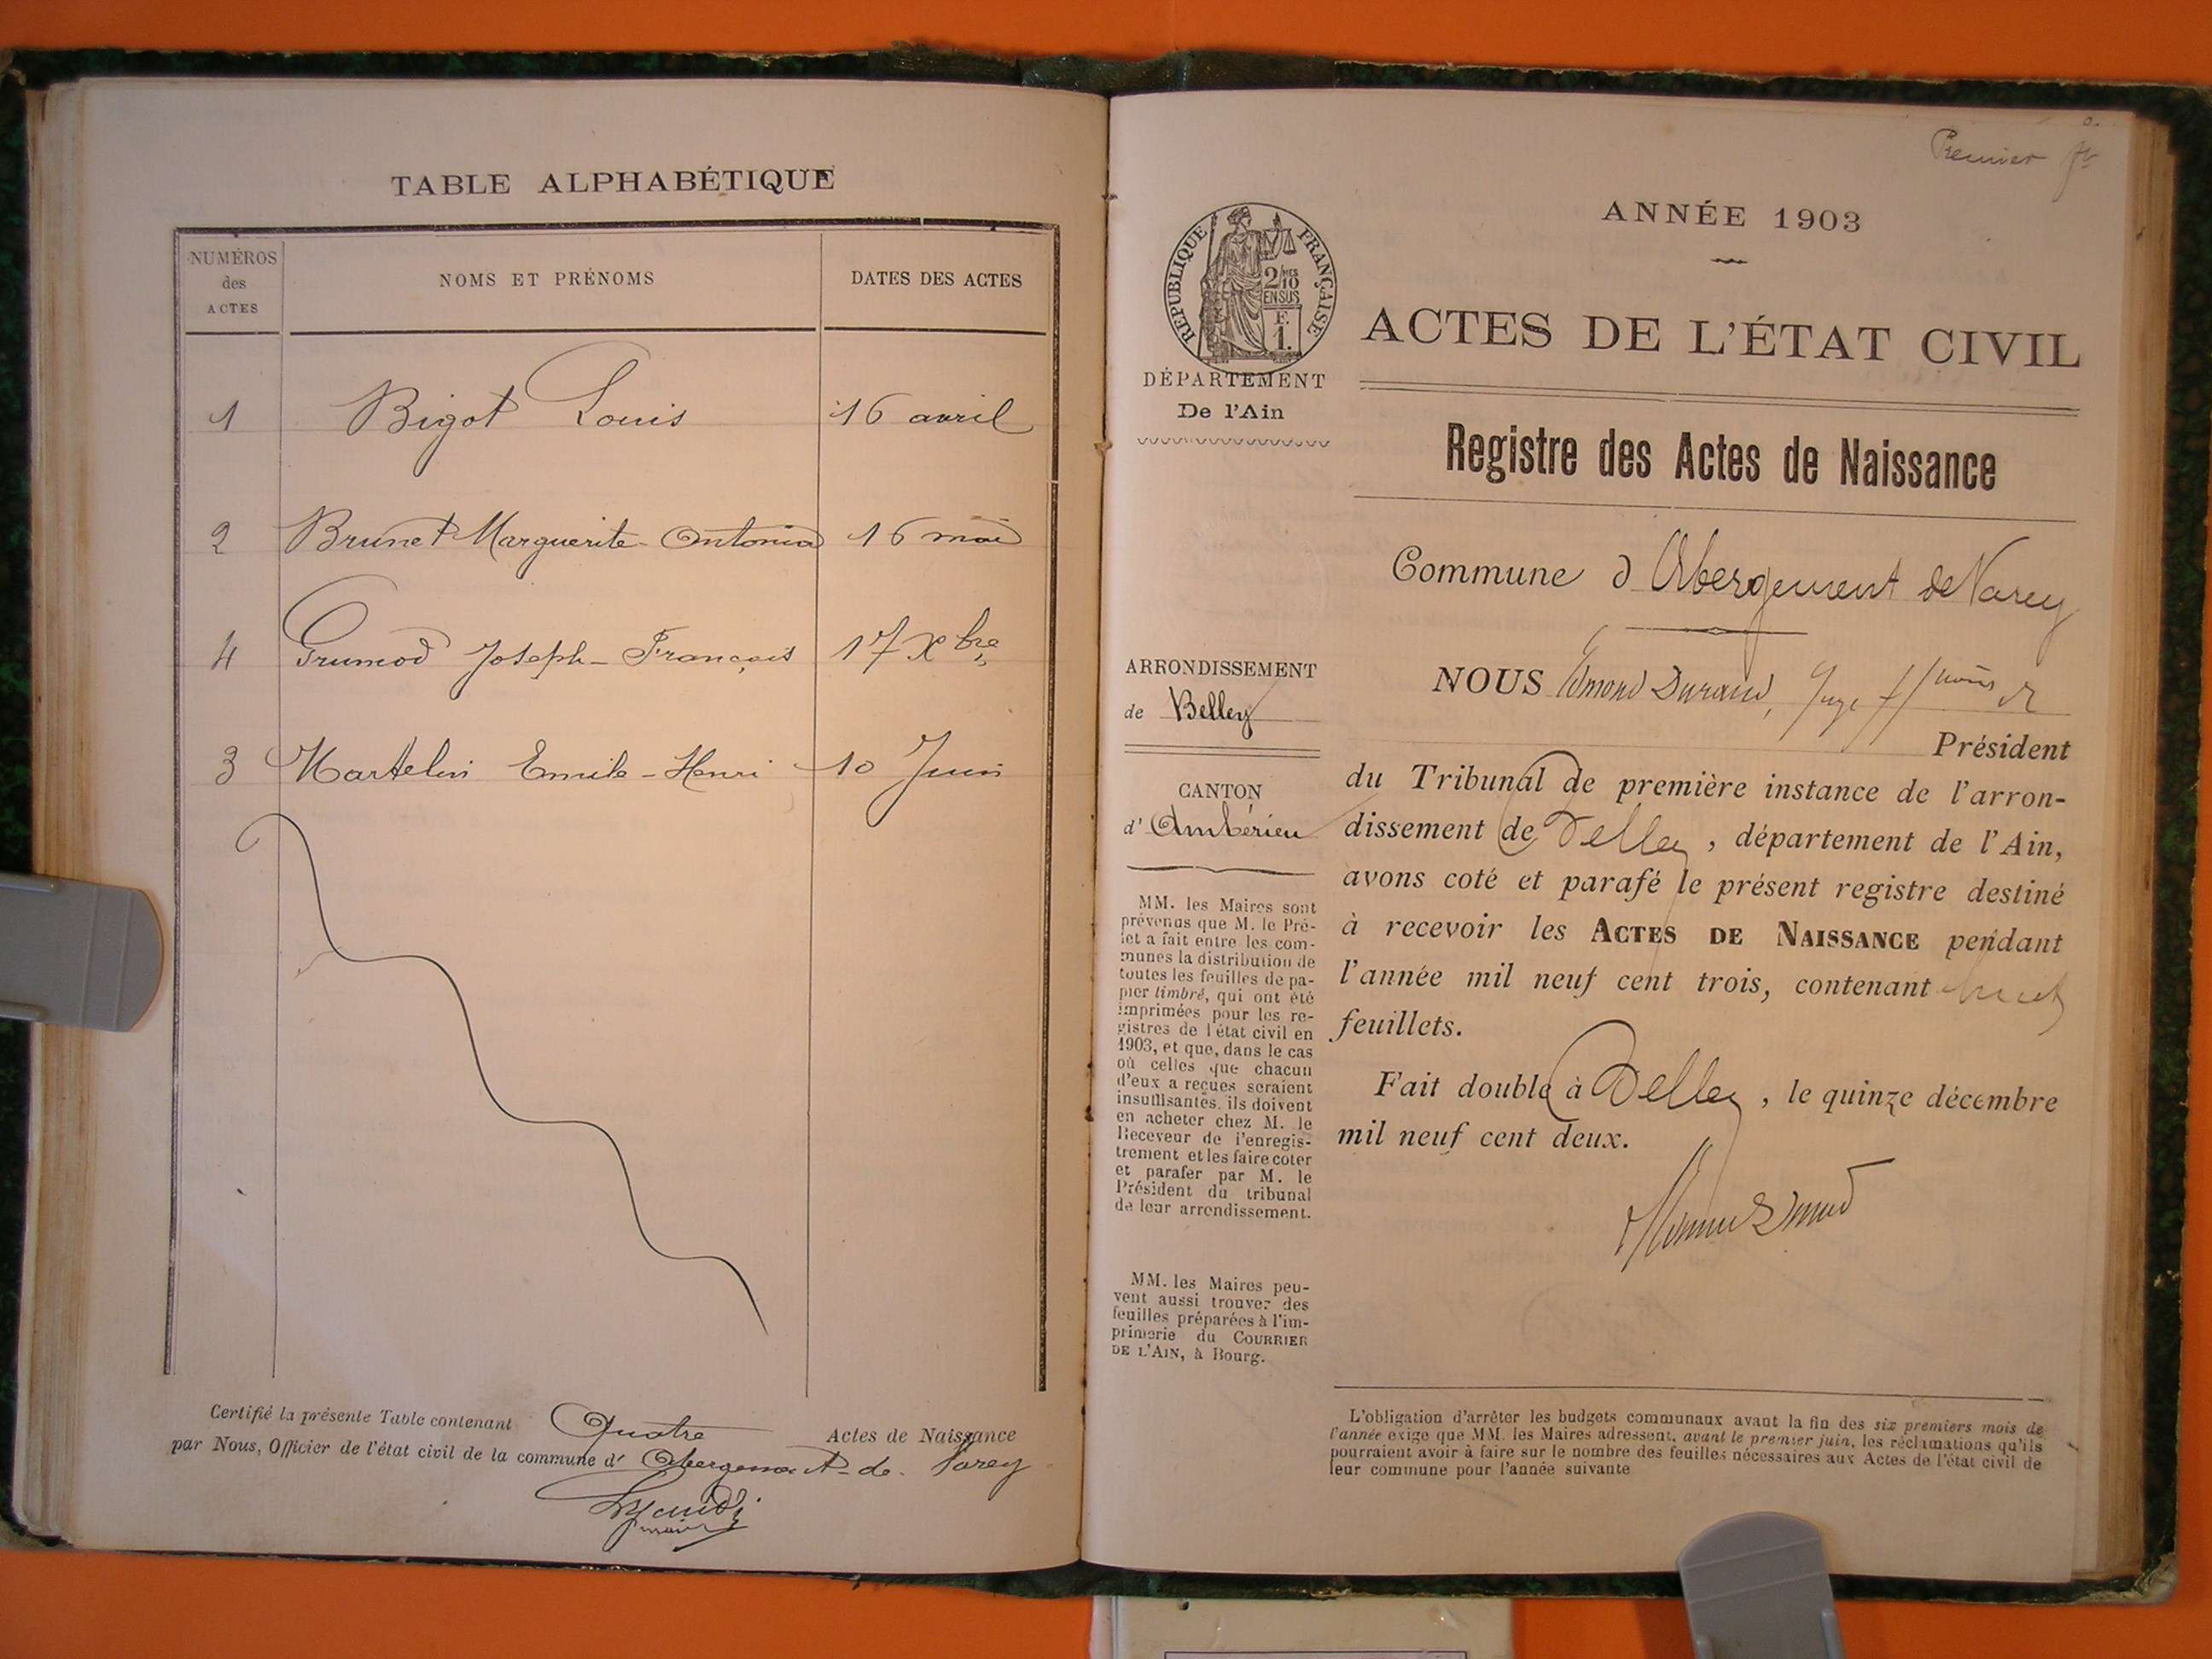 TABLE ALPHABÉTIQUE
NUMÉROS
des
ACTES
NOMS ET PRÉNOMS
DATES DES ACTES
1 Bigot Louis 16 avril
2 Brunet Marguerite-Antonia 16 mai
4 Grumod Joseph-François 17 Xbre
3 Martelin Emile-Henri 10 Juin
Certifié la présente Table contenant Quatre Actes de Naissance
par Nous, Officier de l'état civil de la commune d' Abergement-de-Varey
maire
Premier
ANNÉE 1903
RÉPUBLIQUE FRANÇAISE
2/10
EN SUS
F.
1.
ACTES DE L'ÉTAT CIVIL
DÉPARTEMENT
De l'Ain
Registre des Actes de Naissance
Commune d'Abergement de Varey
ARRONDISSEMENT
de Belley
CANTON
d' Ambérieu
MM. les Maires sont
prévenus que M. le Pré-
fet a fait entre les com-
munes la distribution de
toutes les feuilles de pa-
pier timbré, qui ont été
imprimées pour les re-
gistres de l'état civil en
1903, et que, dans le cas
où celles que chacun
d'eux a reçues seraient
insuffisantes, ils doivent
en acheter chez M. le
Receveur de l'enregis-
trement et les faire coter
et parafer par M. le
Président du tribunal
de leur arrondissement.
MM. les Maires peu-
vent aussi trouver des
feuilles préparées à l'im-
primerie du COURRIER
DE L'AIN, à Bourg.
NOUS Edmond Durand, Juge
Président
du Tribunal de première instance de l'arron-
dissement de Belley, département de l'Ain,
avons coté et parafé le présent registre destiné
à recevoir les ACTES DE NAISSANCE pendant
l'année mil neuf cent trois, contenant huit
feuillets.
Fait double à Belley, le quinze décembre
mil neuf cent deux.
L'obligation d'arrêter les budgets communaux avant la fin des six premiers mois de
l'année exige que MM. les Maires adressent, avant le premier juin, les réclamations qu'ils
pourraient avoir à faire sur le nombre des feuilles nécessaires aux Actes de l'état civil de
leur commune pour l'année suivante